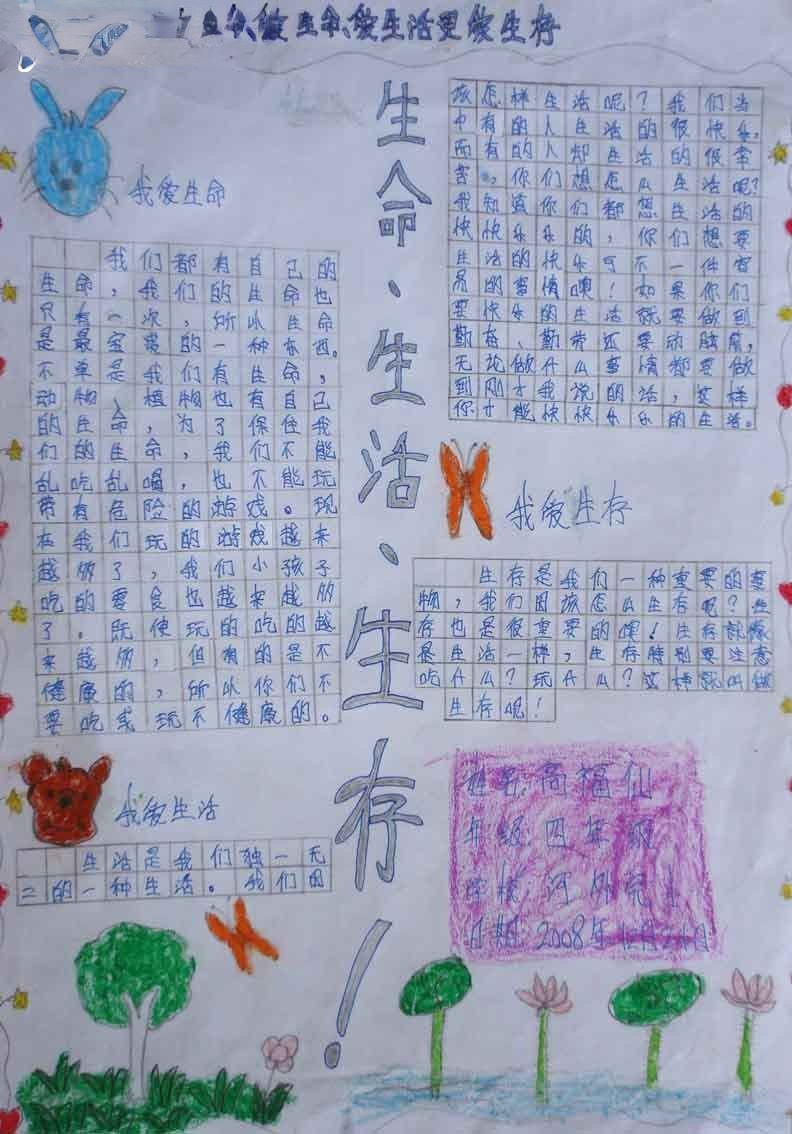 爱生命、爱生活更爱生存
生命、生活、生存!
我爱生命
我们都有自己的
生命,我们的生命也
只有一次,所以生命
是最宝贵的一种东西。
不单是我们有生命,
动物、植物也有自己
的生命,为了保住我
们的生命,我们不能
乱吃乱喝,也不能玩
带有危险的游戏。现
在我们玩的游戏越来
越多了,我们小孩子
吃的零食也越来越多
了。既使玩的吃的越
来越多,但有的是不
健康的,所以你们不
要吃或玩不健康的。
我爱生活
生活是我们独一无
二的一种生活。我们因
该怎样生活呢?我们当
中有的人生活的很快乐,
而有的人却生活的很辛
苦,你们想怎么生活呢?
我知道你们都想生活的
快快乐乐的,你们想要
生活的快乐可不一件容
易的事情噢!如果你们
要快乐的生活就要做到
勤奋、勤劳还要动脑筋,
无论做什么事情都要做
到刚才我说的话,这样
你才能快快乐乐的生活。
我爱生存
生存是我们一种重要的事
物,我们因该怎么生存呢?生
存也是很重要的噢!生存就像
是生活一样,生存特别要注意
吃什么?玩什么?这样就叫做
生存呢!
姓名:高福仙
年级:四年级
学校:河外完小
日期:2008年12月24日